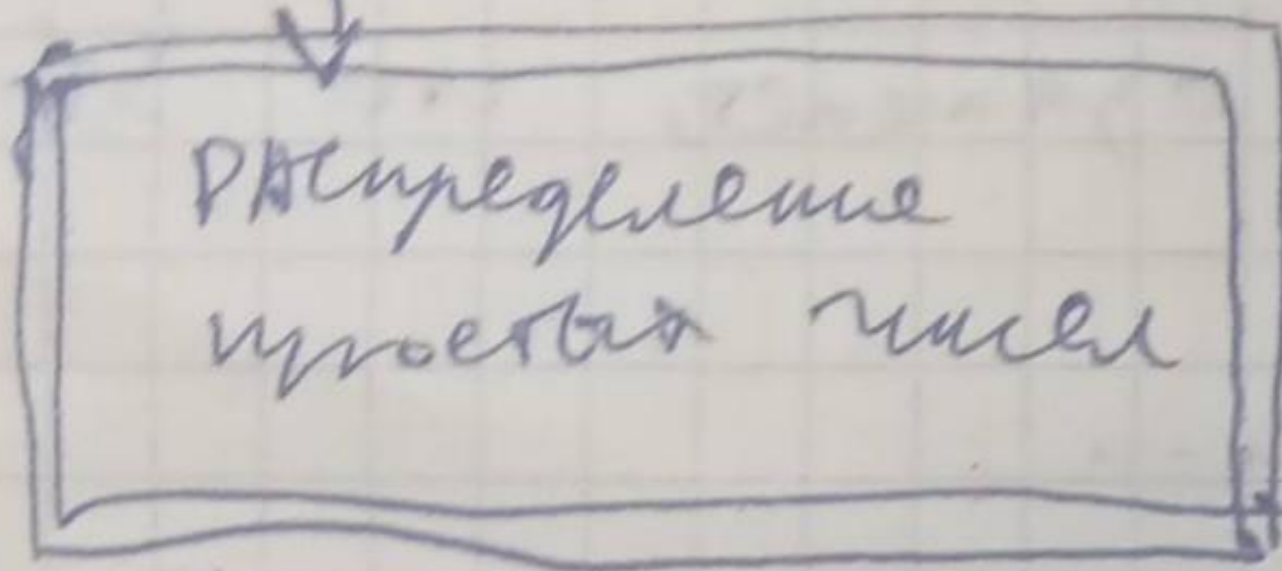 Распределение
простых чисел